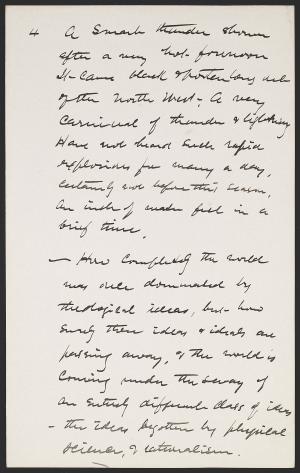 4 A smart thunder shower
after a very hot forenoon
It came black & portentous out
of the North West. A very
Carnival of thunder & lightning
Have not heard such rapid
explosions for many a day,
certainly not before this season,
An inch of water fell in a
brief time.
— How completely the world
was once dominated by
theological ideas, but how
surely these ideas & ideals are
passing away, & the world is
coming under the sway of
an entirely different class of ideas
- the ideas begotten by physical
science, & naturalism.